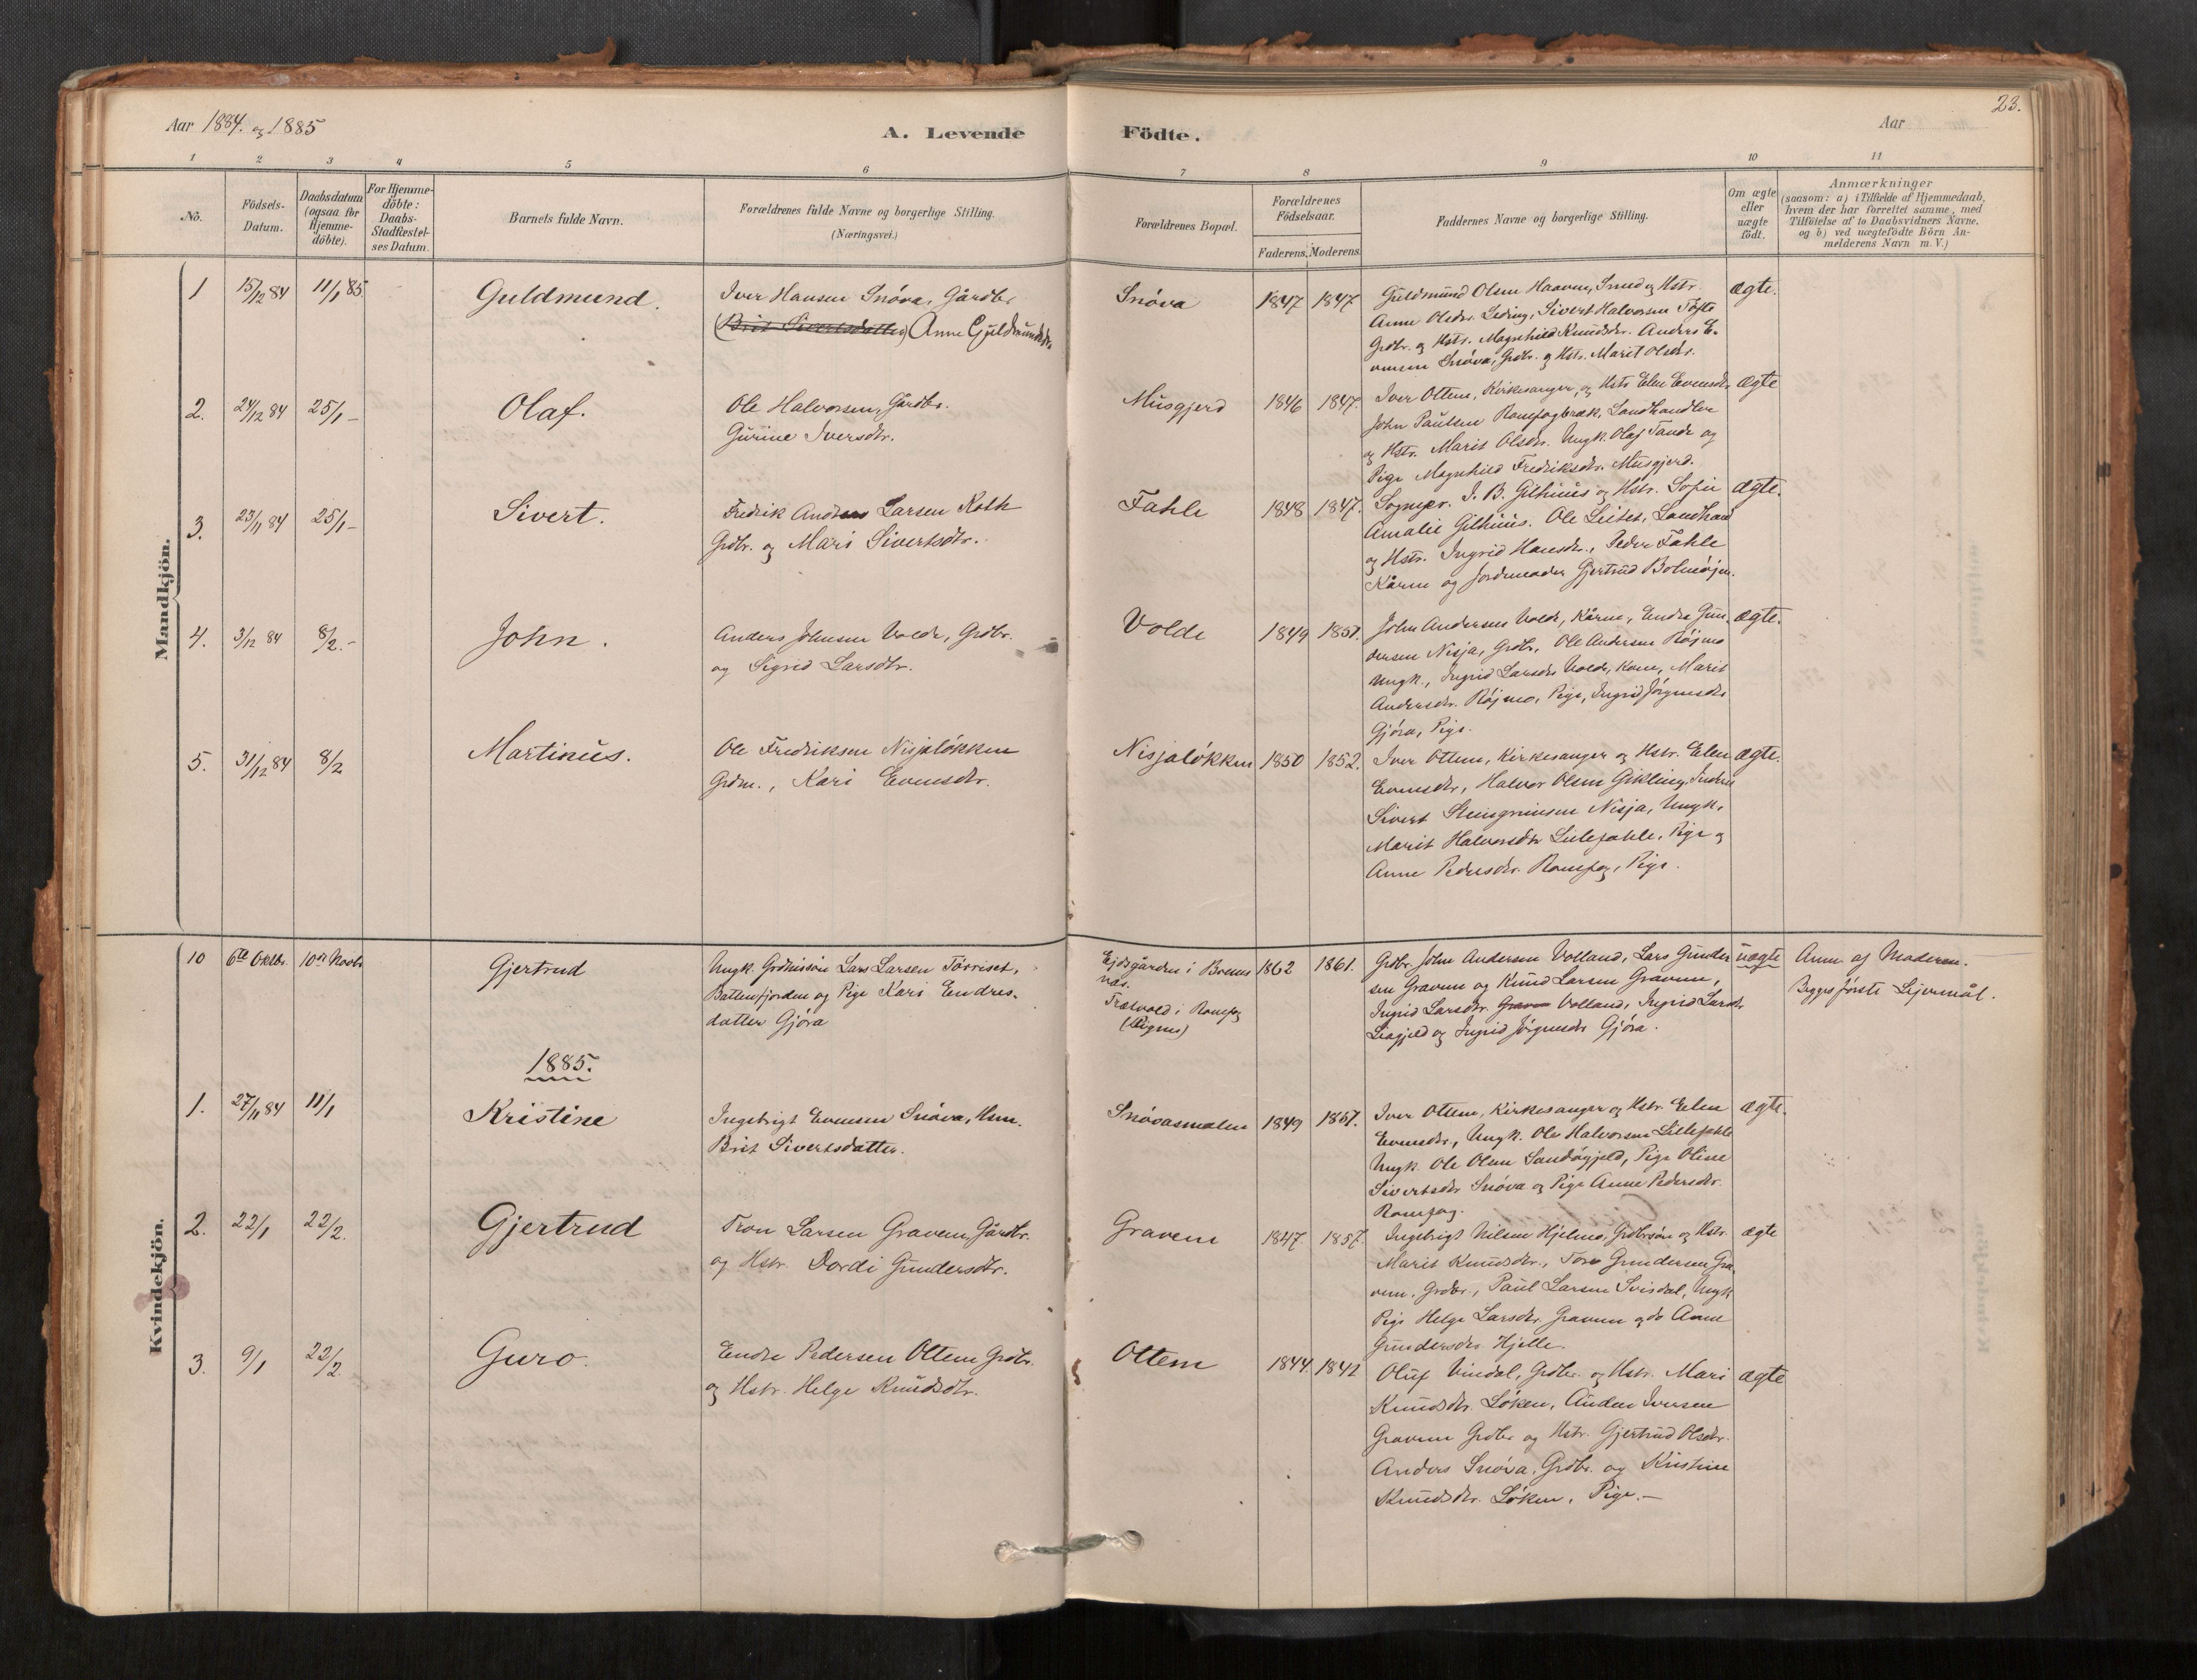 Aar 1884. og 1885
A. Levende
Födte.
Aar
23.
1 2 3 4 5 6 7 8 9 10 11
No.
Födsels-
Datum.
Daabsdatum
(ogsaa for
Hjemme-
döbte).
For Hjemme-
döbte:
Daabs-
Stadfæstel-
ses Datum.
Barnets fulde Navn.
Forældrenes fulde Navne og borgerlige Stilling.
(Næringsvei.)
Forældrenes Bopæl.
Forældrenes
Födselsaar.
Faderens. Moderens.
Faddernes Navne og borgerlige Stilling.
Om ægte
eller
uægte
födt.
Anmærkninger
(saasom: a) i Tilfælde af Hjemmedaab,
hvem der har forrettet samme, med
Tilföielse af to Daabsvidners Navne,
og b) ved uægtefödte Börn An-
melderens Navn m. V.)
Mandkjön.
1 15/12 84 11/1 85 Guldmund.
Iver Hansen Snöva, Gårdbr
(Brit Sivertsdatter) Anne Guldmundsdtr
Snöva 1847 1847
Guldmund Olsen Haaven, Smed og Hstr.
Anne Olsdr. Leding, Sivert Halvorsen Tofte
Grdbr. og Hstr. Magnhild Knudsdr. Anders E-
vensen Snöva, Grdbr. og Hstr. Marit Olsdr.
ægte.
2. 24/12 84 25/1 - Olaf.
Ole Halvorsen, Gårdbr.
Gurine Iversdtr.
Musgjerd 1846 1847.
Iver Ottem, Kirkesanger, og Hstr Elen Evensdr
John Paulsen Romfogbræk, Landhandler
og Hstr. Marit Olsdr. Ungk. Olaf Tande og
Pige Magnhild Fredriksdr. Musgjerd.
ægte
3. 23/11 84 25/1 - Sivert.
Fredrik Anders Larsen Roth
Grdbr. og Mari Sivertsdtr.
Fahle 1848 1847.
Sognepr. J. B. Gilhuus og Hstr. Sofie
Amalie Gilhuus. Ole Leitet, Landhand
og Hstr. Ingrid Hansdr., Peder Fahle
Kårm og Jordmoder Gjertrud Bolmöjen.
ægte.
4. 3/12 84 8/2. - John.
Anders Johnsen Volde, Grdbr.
og Sigrid Larsdtr.
Volde 1849 1851.
John Andersen Volde, Kårm, Endre Gun-
dersen Nisja, Grdbr, Ole Andersen Röjmo
Ungk., Ingrid Larsdr Volde, Kone, Marit
Andersdr. Röjmo, Pige, Ingrid Jörgensdr
Gjöra, Pige.
ægte.
5. 31/12 84 8/2 Martinus.
Ole Fredriksen Nisjalökken
Grdm., Kari Evensdtr.
Nisjalökken 1850 1852.
Iver Ottem, Kirkesanger og Hstr. Elen
Evensdtr, Halvor Olsen Gikling, Inderst
Sivert Steingrimsen Nisja, Ungk.
Marit Halvorsdtr Lillefahle, Pige og
Anne Pedersdr. Romfog, Pige.
ægte.
Kvindekjön.
10 6te Oktbr. 10de Novbr Gjertrud
Ungk. Grdmssön Lars Larsen Törriset,
Battenfjorden og Pige Kari Endres-
datter Gjöra
Ejdsgården i Brems
næs.
Trætvold i Romfog
(Pigens)
1862 1861.
Grdbr. John Andersen Volland, Lars Gunder
sen Gravem og Knud Larsen Gravem,
Ingrid Larsdtr. Gravem Volland, Ingrid Larsdr
Liagjeld og Ingrid Jörgensdr Gjöra.
uægte
Anm af Moderen.
Begges förste Lejermål.
1885.
1. 27/11 84 11/1 Kristine
Ingebrigt Evensen Snöva, Hsm.
Brit Sivertsdatter.
Snövasmalen 1849 1857.
Iver Ottem, Kirkesanger og Hstr. Elen
Evensdr, Ungk. Ole Halvorsen Lillefahle
Ungk. Ole Olsen Sandågjeld, Pige Oline
Sivertsdr Snöva og Pige Anne Pedersdr.
Romfog.
ægte.
2. 22/1 22/2. Gjertrud
Tron Larsen Gravem, Gårdbr.
og Hstr. Dordi Gundersdtr.
Gravem 1847 1857.
Ingebrigt Nilsen Hjelmo, Grdbrsön og Hstr.
Marit Knudsdtr., Tore Gundersen Gra-
vem, Grdbr., Paul Larsen Svisdal, Ungk
Pige Helge Larsdr. Gravem og do Anne
Gundersdr. Hjelle.
ægte
3. 9/1 22/2. Guro.
Endre Pedersen Ottem Grdbr.
og Hstr. Helge Knudsdtr.
Ottem 1844. 1842
Oluf Vindal, Grdbr. og Hstr. Mari
Knudsdtr. Löken, Auden Iversen
Gravem Grdbr og Hstr. Gjertrud Olsdtr.
Anders Snöva, Grdbr. og Kristine
Knudsdtr. Löken, Pige. -
ægte